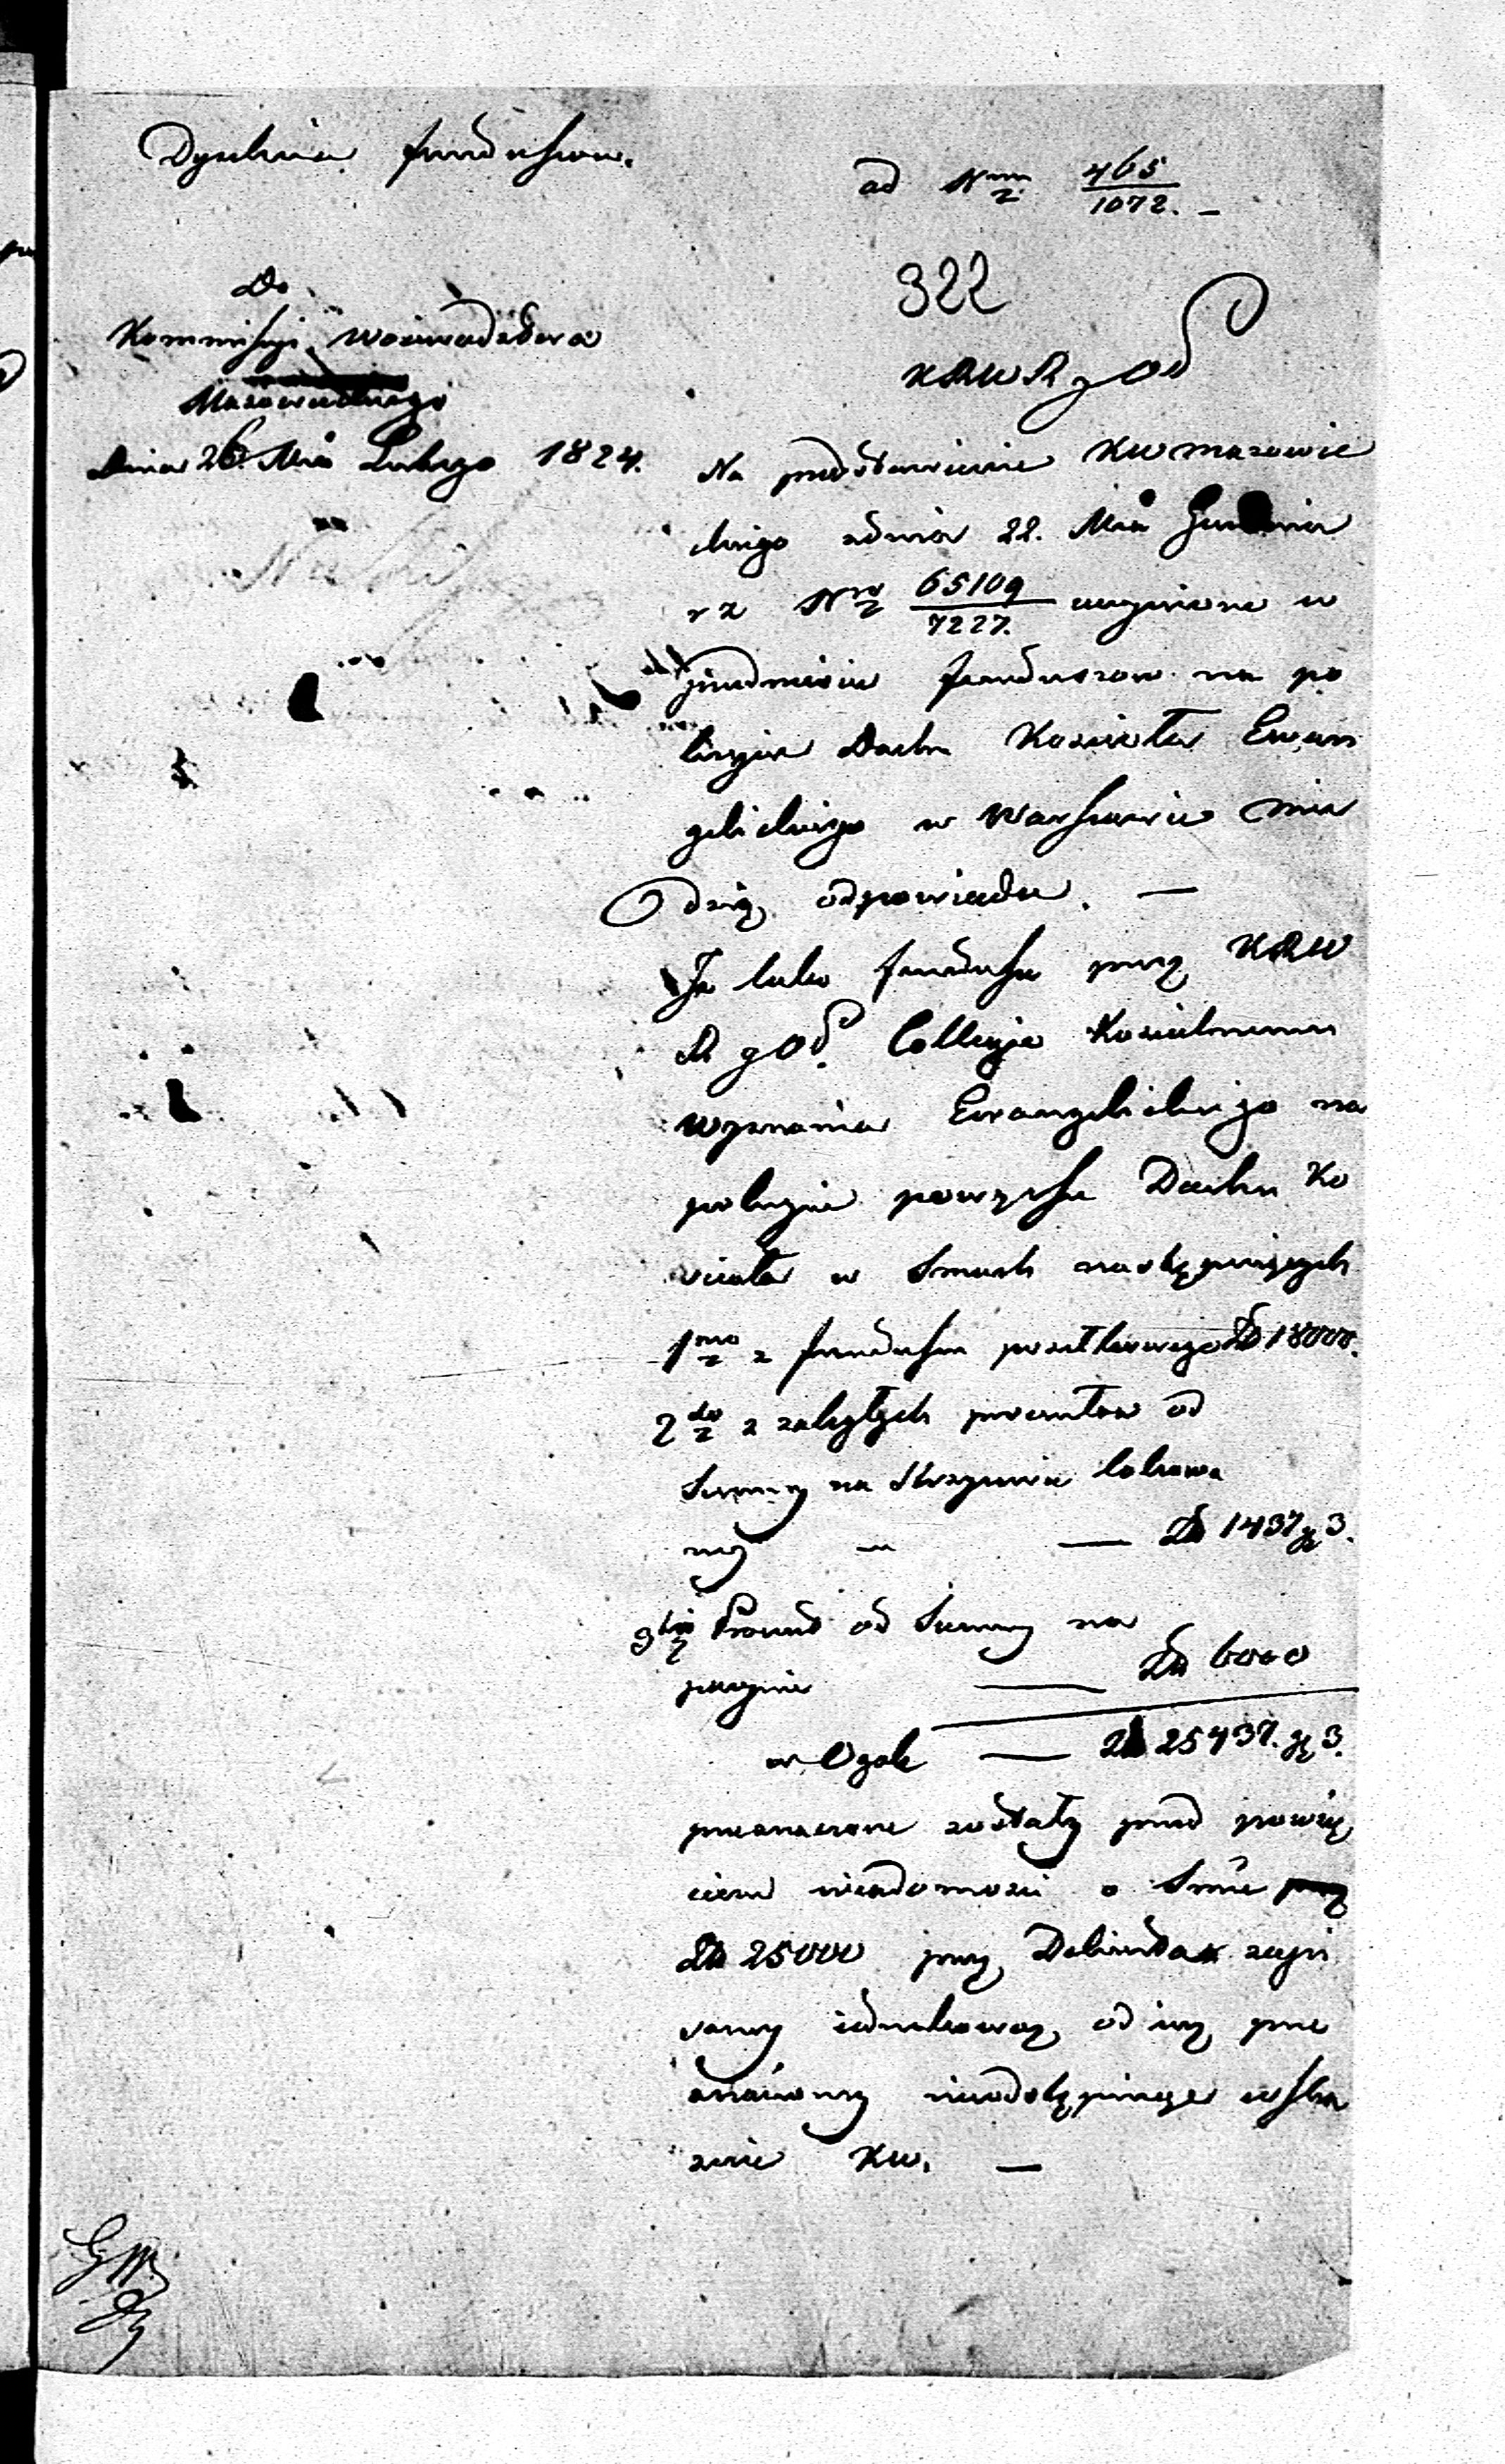 Dyrekcia funduszow.
ad Nrm 465/1072. –
322
Do
Kommissyi Woiewodzkiey
Mazowieckiego
Dnia 26. Mca Lutego 1824.
KRWR y OP
Na przedstawienie KW mazowie
ckiego z dnia 22. Mca Grudnia
r z Nro 65109/7227. uczynione w
przedmiocie funduszow na po
krycie Dachu Koscioła Ewan
gelickiego w Warszawie nie
odpowiada. —
Ze takie fundusze przez KRW
R y OP. Collegio Koscielnemu
wyznania Ewangelickiego na
pokrycie powyższe Dachu Ko
scioła w Smach następuiących
1mo z funduszu Zł 18000.
2do z zaległych procentow od
Summy na lokowa
ney — — Zł 1437 gr 3.
3tio Procent od Summy na
Zł 6000
w Ogole — Zł 25437. gr 3.
przeznaczone zostały przed powzię
ciem wiadomosci o Smie
Zł 25000 przez
od iey prze
znaczoney nieodstępuiąc
KW. —